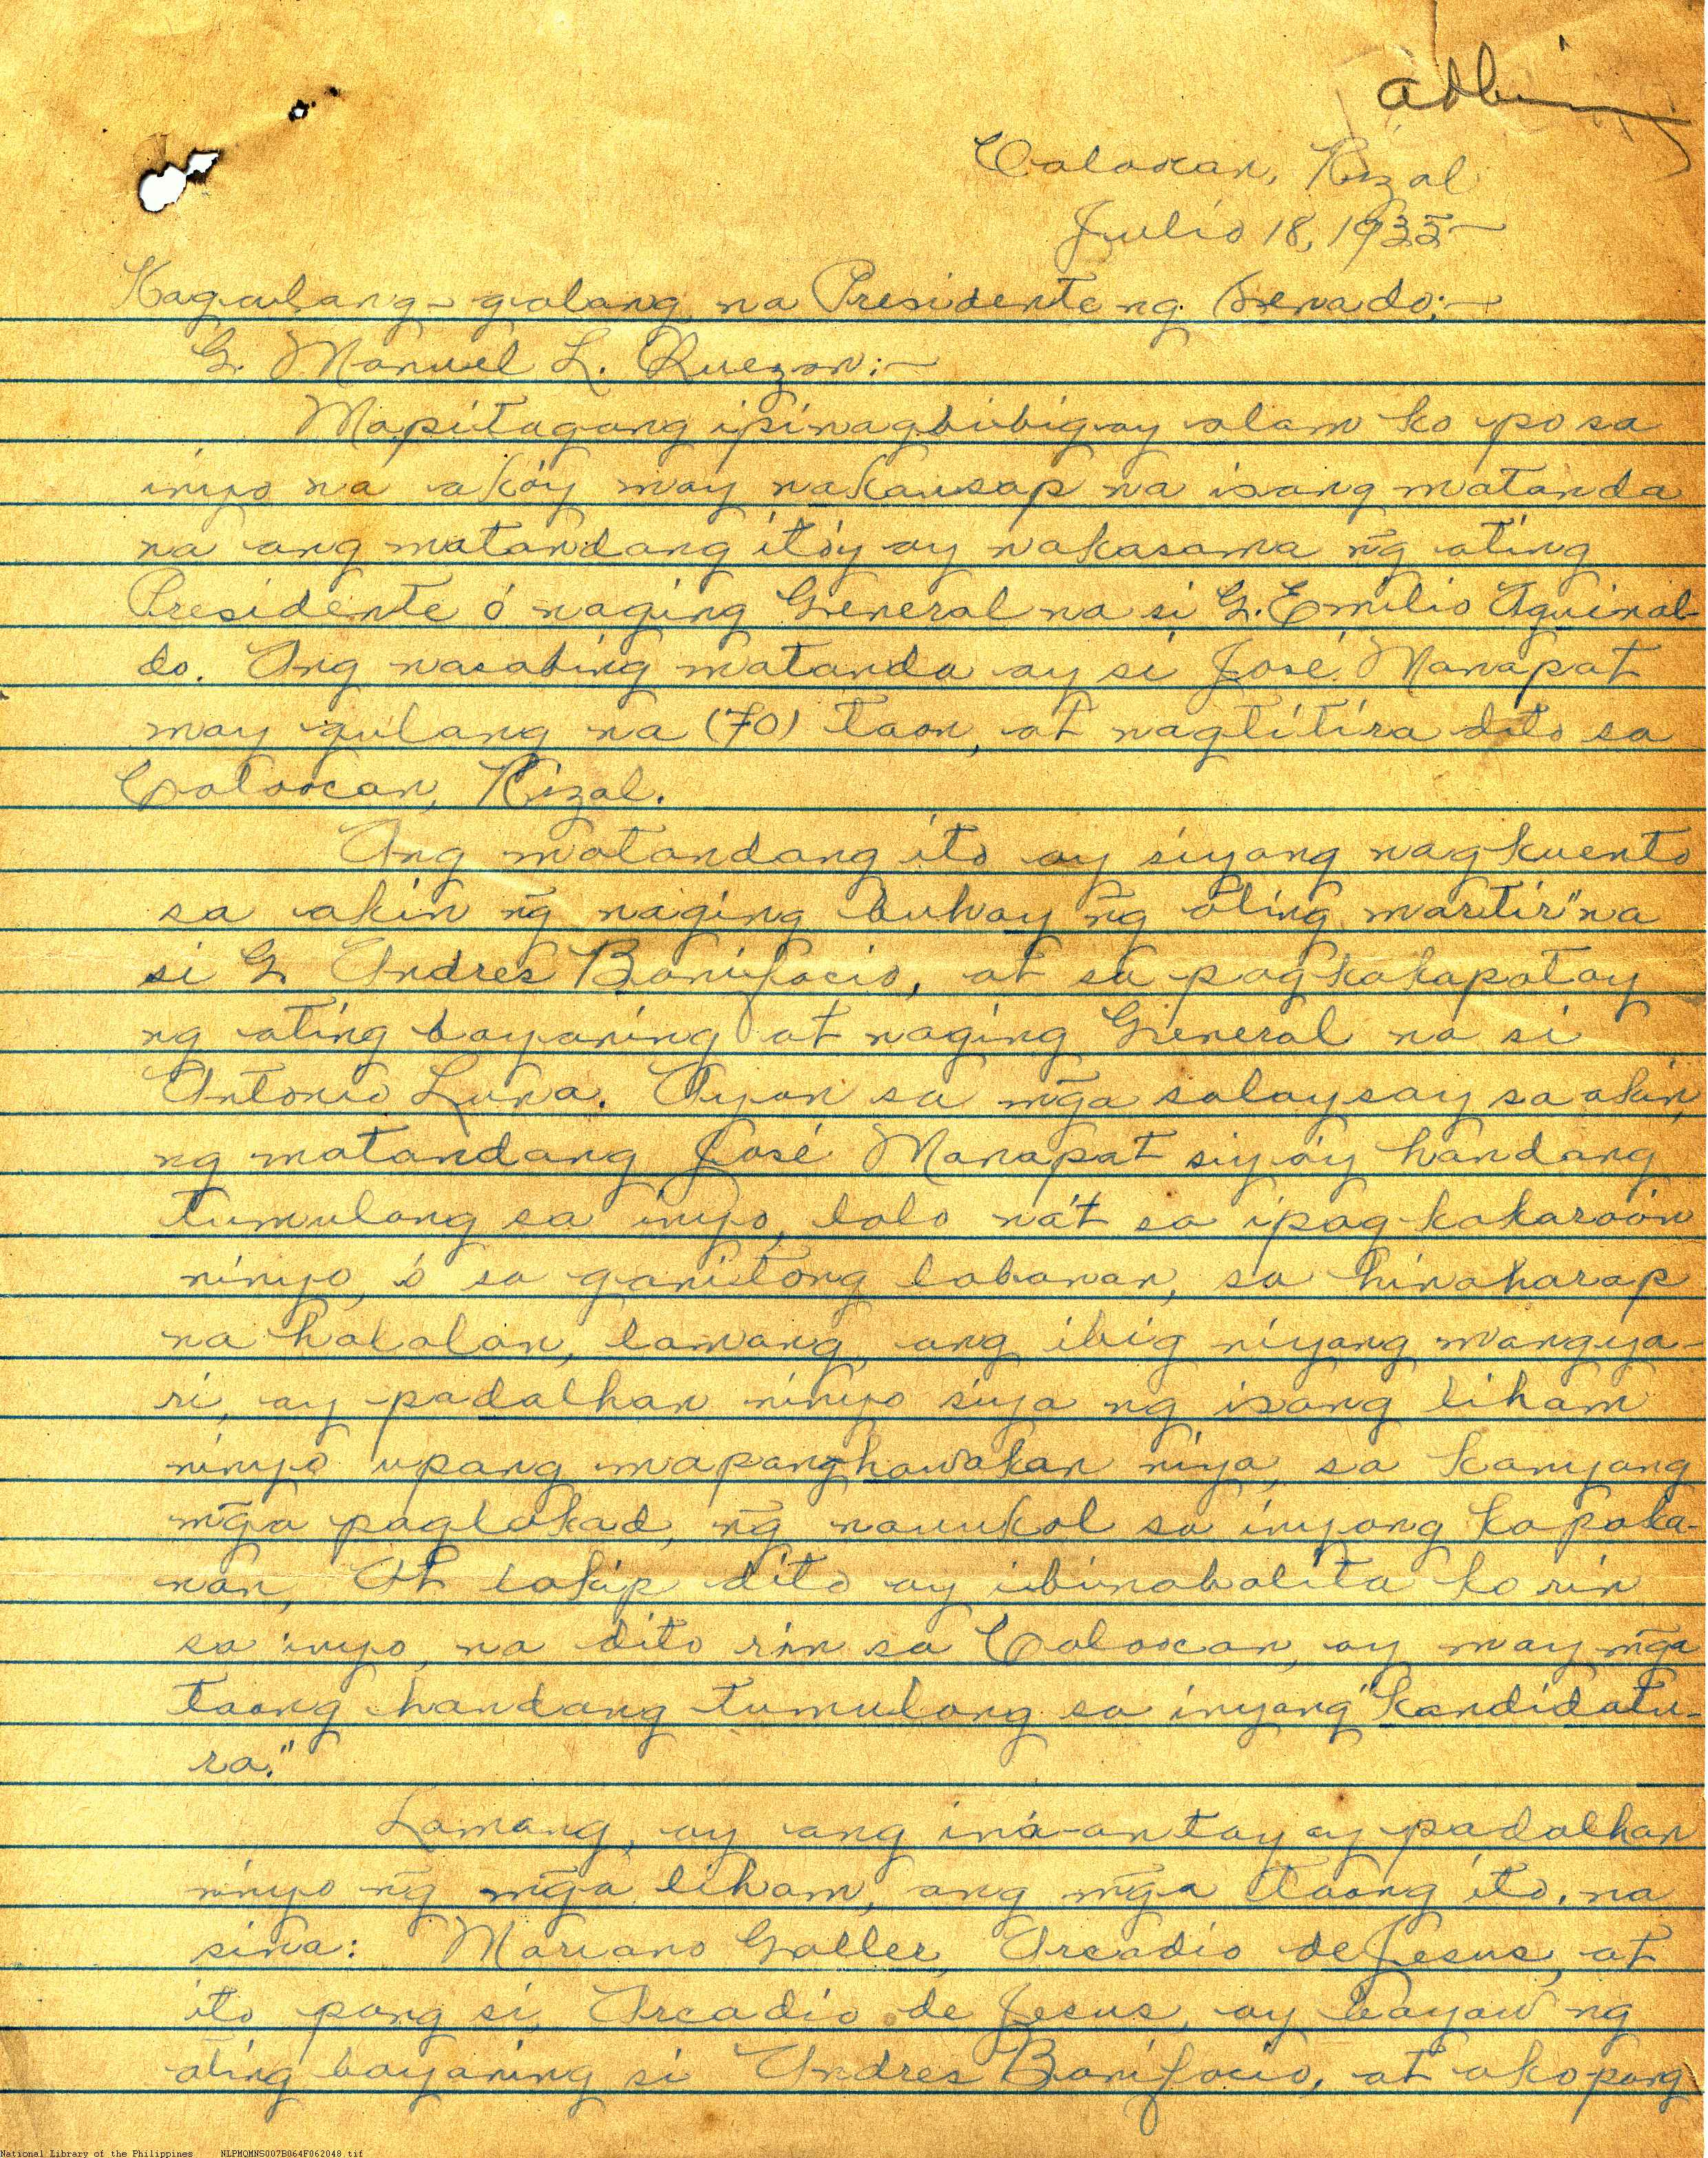 Caloocan, Rizal
Julio 18, 1935
Kagalang-galang na Presidente ng Senado:-
G. Manuel L. Quezon:-
Mapitagang ipinagbibigay alam ko po sa
inyo na ako'y may nakausap na isang matanda
na ang matandang ito'y ay nakasama ng̃ ating
Presidente ó naging General na si G. Emilio Aguinal-
do. Ang nasabing matanda ay si José Manapat
may gulang na (70) taon, at nagtitira dito sa
Caloocan, Rizal.
Ang matandang ito ay siyang nagkuento
sa akin ng̃ naging buhay ng̃ ating martir" na
si G. Andres Bonifacio, at sa pagkakapatay
ng ating bayaning at naging General na si
Antonio Luna. Ayon sa mg̃a salaysay sa akin,
ng matandang José Manapat siya'y handang
tumulong sa inyo, lalo na't sa ipag-kakaroón
ninyo, ó sa ganitong labanan, sa hinaharap
na halalan, lamang, ang ibig niyang mangya-
ri, ay padalhan ninyo siya ng isang liham
ninyo upang mapanghawakan niya, sa kanyang
mg̃a paglakad, ng̃ nauukol sa inyong kapaka-
nan, At lakip dito ay ibinabalita ko rin
sa inyo, na dito rin sa Caloocan, ay may mg̃a
taong handang tumulong sa inyong "kandidatu-
ra."
Lamang, ay ang iná-antay ay padalhan
ninyo ng̃ mg̃a liham, ang mg̃a taong ito, na
sina: Mariano Galler, Arcadio de Jesus, at
ito pang si, Arcadio de Jesus, ay bayaw ng
ating bayaning si Andres Bonifacio, at ako pang
National Library of the Philippines NLPMQMNS007B064F062048.tif